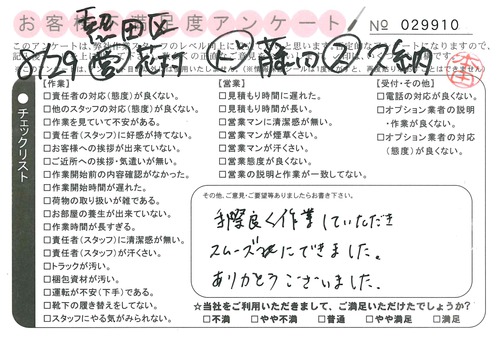 お客様の満足度アンケート
No 029910
熱田区
8/29
【作業】
□責任者の対応(態度)が良くない。
□他のスタッフの対応(態度)が良くない。
□作業を見ていて不安がある。
□責任者(スタッフ)に好感が持てない。
□お客様への挨拶が出来ていない。
□ご近所への挨拶・気遣いが無い。
□作業開始前の内容確認がなかった。
□作業開始時間が遅れた。
□荷物の取り扱いが雑である。
□お部屋の養生が出来ていない。
□作業時間が長すぎる。
□責任者(スタッフ)に清潔感が無い。
□責任者(スタッフ)が汗くさい。
□トラックが汚い。
□梱包資材が汚い。
□運転が不安(下手)である。
□靴下の履き替えをしてない。
□スタッフにやる気がみられない。
【営業】
□見積もり時間に遅れた。
□見積もり時間が長い。
□営業マンに清潔感が無い。
□営業マンが煙草くさい。
□営業マンが汗くさい。
□営業態度が良くない。
□営業の説明と作業が一致してない。
【受付・その他】
□電話の対応が良くない。
□オプション業者の説明
・作業が良くない。
□オプション業者の対応
(態度)が良くない。
チェックリスト
その他、ご意見・ご要望等ありましたらお書き下さい。
手際良く作業していただき
スムーズにできました。
ありがとうございました。
★当社をご利用いただきまして、ご満足いただけたでしょうか?
□不満 □やや不満 □普通 □やや満足 □満足